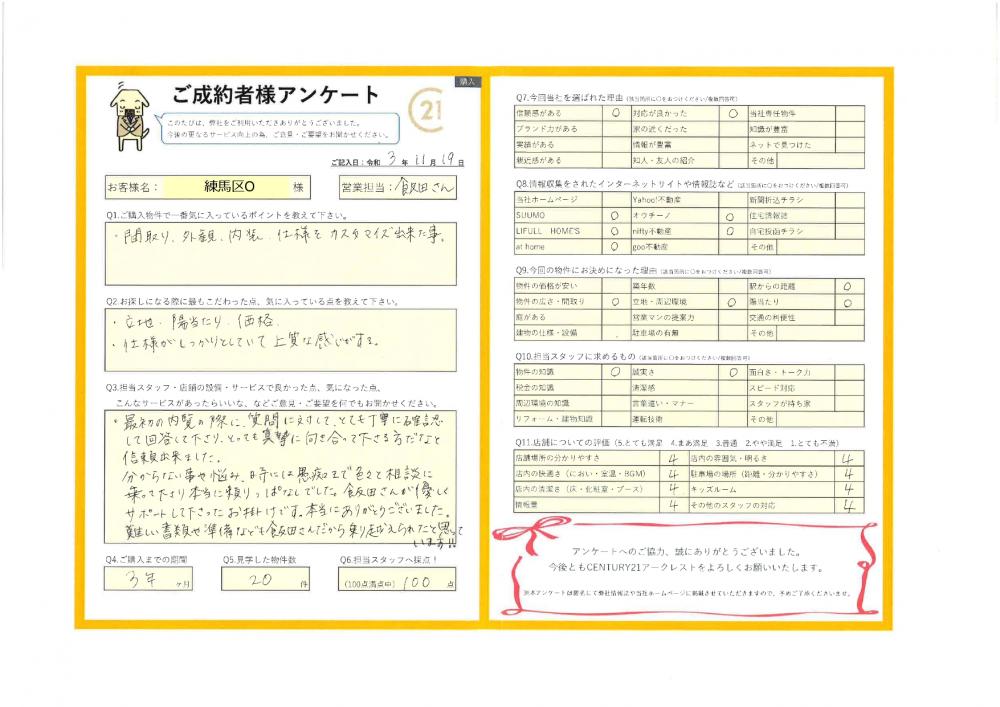 購入
ご成約者様アンケート
21
このたびは、弊社をご利用いただきありがとうございました。
今後の更なるサービス向上の為、ご意見・ご要望をお聞かせください。
ご記入日：令和 3 年 11 月 19 日
お客様名： 練馬区O 様
営業担当：飯田さん
Q1.ご購入物件で一番気に入っているポイントを教えて下さい。
・間取り、外観、内装、仕様をカスタマイズ出来た事。
Q2.お探しになる際に最もこだわった点、気に入っている点を教えて下さい。
・立地、陽当たり、価格、
・仕様がしっかりとしていて上質な感じがする。
Q3.担当スタッフ・店舗の設備・サービスで良かった点、気になった点、
こんなサービスがあったらいいな、などご意見・ご要望を何でもお聞かせください。
・最初の内覧の際に、質問に対して、とても丁寧に確認
して回答して下さり、とっても真摯に向き合って下さる方だなと
信頼出来ました。
分からない事や悩み、時には愚痴まで色々と相談に
乗って下さり本当に頼りっぱなしでした。飯田さんが優しく
サポートして下さったお掛けです。本当にありがとうございました。
難しい書類や準備なども飯田さんだから乗り越えられたと思って
います!!
Q4.ご購入までの期間
3年 ヶ月
Q5.見学した物件数
20 件
Q6.担当スタッフへ採点！
(100点満点中) 100 点
Q7.今回当社を選ばれた理由（該当箇所に〇をおつけください/複数回答可）
信頼感がある 〇 対応が良かった 〇 当社専任物件
ブランド力がある 家の近くだった 知識が豊富
実績がある 情報が豊富 ネットで見つけた
親近感がある 知人・友人の紹介 その他
Q8.情報収集をされたインターネットサイトや情報誌など（該当箇所に〇をおつけください/複数回答可）
当社ホームページ Yahoo!不動産 新聞折込チラシ
SUUMO 〇 オウチーノ 〇 住宅情報誌
LIFULL HOME'S 〇 nifty不動産 〇 自宅投函チラシ
at home 〇 goo不動産 その他
Q9.今回の物件にお決めになった理由（該当箇所に〇をおつけください/複数回答可）
物件の価格が安い 築年数 駅からの距離 〇
物件の広さ・間取り 〇 立地・周辺環境 〇 陽当たり 〇
庭がある 営業マンの提案力 交通の利便性
建物の仕様・設備 駐車場の有無 その他
Q10.担当スタッフに求めるもの（該当箇所に〇をおつけください/複数回答可）
物件の知識 〇 誠実さ 〇 面白さ・トーク力
税金の知識 清潔感 スピード対応
周辺環境の知識 言葉遣い・マナー スタッフが持ち家
リフォーム・建物知識 運転技術 その他
Q11.店舗についての評価（5.とても満足 4.まあ満足 3.普通 2.やや不満 1.とても不満）
店舗場所の分かりやすさ 4 店内の雰囲気・明るさ 4
店内の快適さ（におい・室温・BGM） 4 駐車場の場所（距離・分かりやすさ） 4
店内の清潔さ（床・化粧室・ブース） 4 キッズルーム 4
情報量 4 その他のスタッフの対応 4
アンケートへのご協力、誠にありがとうございました。
今後ともCENTURY21アークレストをよろしくお願いいたします。
※本アンケートは匿名にて弊社情報誌や当社ホームページに掲載させていただきますので、予めご了承くださいませ。